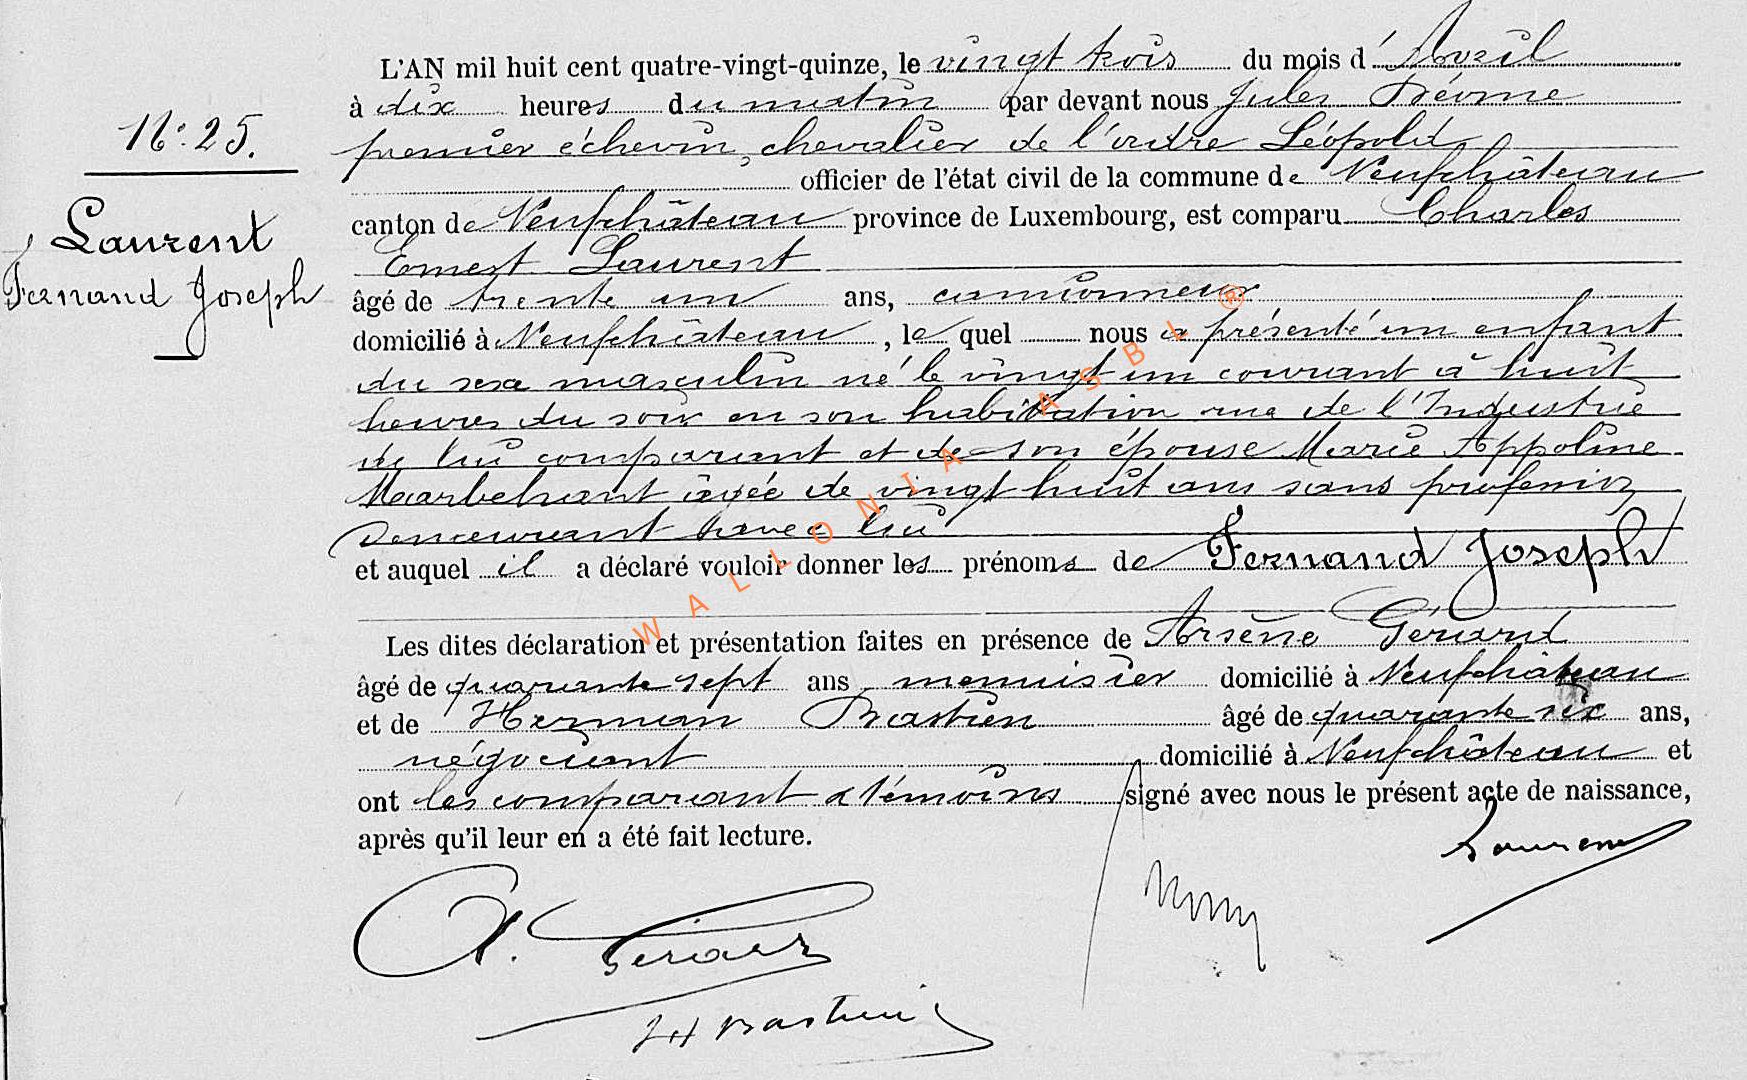 L'AN mil huit cent quatre-vingt-quinze, le vingt trois du mois d' Avril
à dix heures du matin par devant nous Jules
premier échevin, chevalier de l'ordre Léopold
officier de l'état civil de la commune de Neufchâteau
N° 25.
canton de Neufchâteau province de Luxembourg, est comparu Charles
Laurent
Ernest Laurent
Fernand Joseph
âgé de trente un ans, camionneur
domicilié à Neufchâteau, le quel nous a présenté un enfant
du sexe masculin né le vingt un courant à huit
heures du soir en son habitation rue de l'Industrie
de lui comparant et de son épouse Marie Appoline
Marbehant âgée de vingt huit ans sans profession
demeurant avec lui
et auquel il a déclaré vouloir donner les prénoms de Fernand Joseph
Les dites déclaration et présentation faites en présence de Arsène Gérard
âgé de quarante sept ans menuisier domicilié à Neufchâteau
et de Herman Bastien âgé de quarante six ans,
négociant domicilié à Neufchâteau et
ont les comparant & témoins signé avec nous le présent acte de naissance,
après qu'il leur en a été fait lecture.
Laurent
A. Gérard
H Bastien
WALLONIA ASBL ®